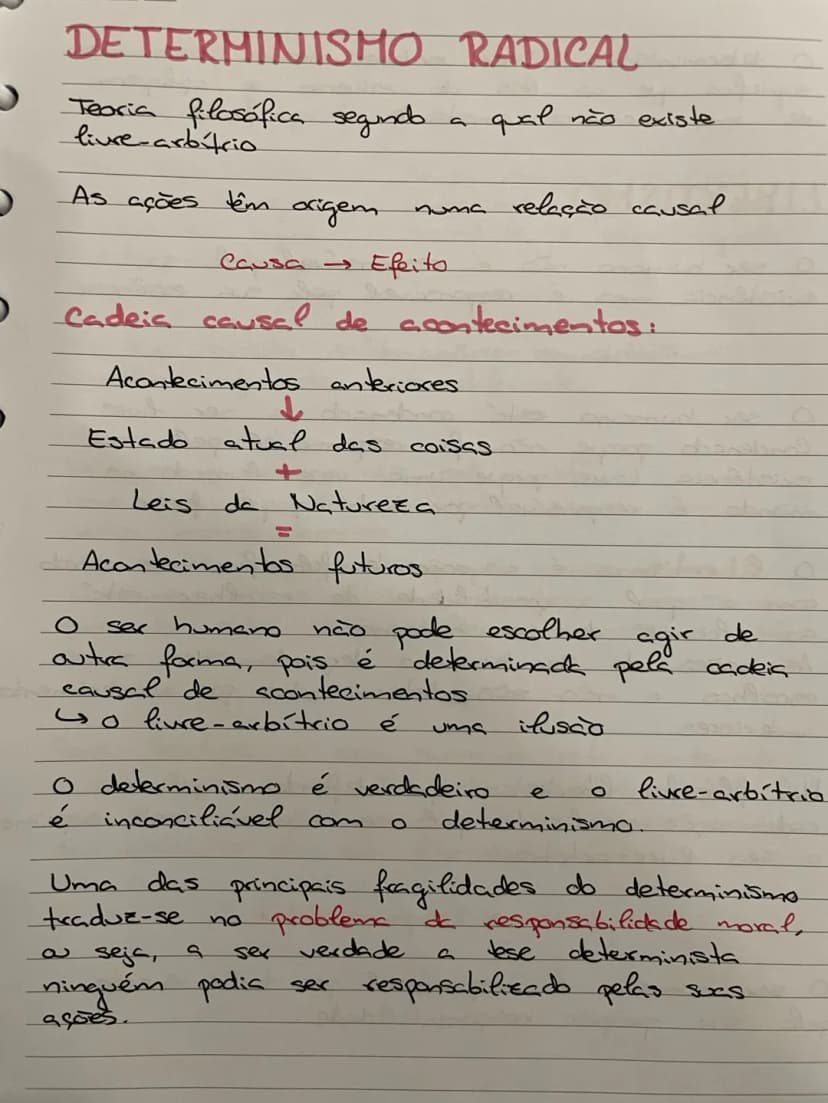 DETERMINISMO RADICAL
Teoria filosófica segundo a qual não existe
livre-arbítrio
As ações têm origem numa relação causal
Causa → Efeito
Cadeia causal de acontecimentos:
Acontecimentos anteriores
↓
Estado atual das coisas
+
Leis da Natureza
=
Acontecimentos futuros
O ser humano não pode escolher agir de
outra forma, pois é determinada pela cadeia
causal de acontecimentos
↳ o livre-arbítrio é uma ilusão
O determinismo é verdadeiro e o livre-arbítrio
é inconciliável com o determinismo.
Uma das principais fragilidades do determinismo
traduz-se no problema da responsabilidade moral,
ou seja, a ser verdade a tese determinista
ninguém podia ser responsabilizado pelas suas
ações.